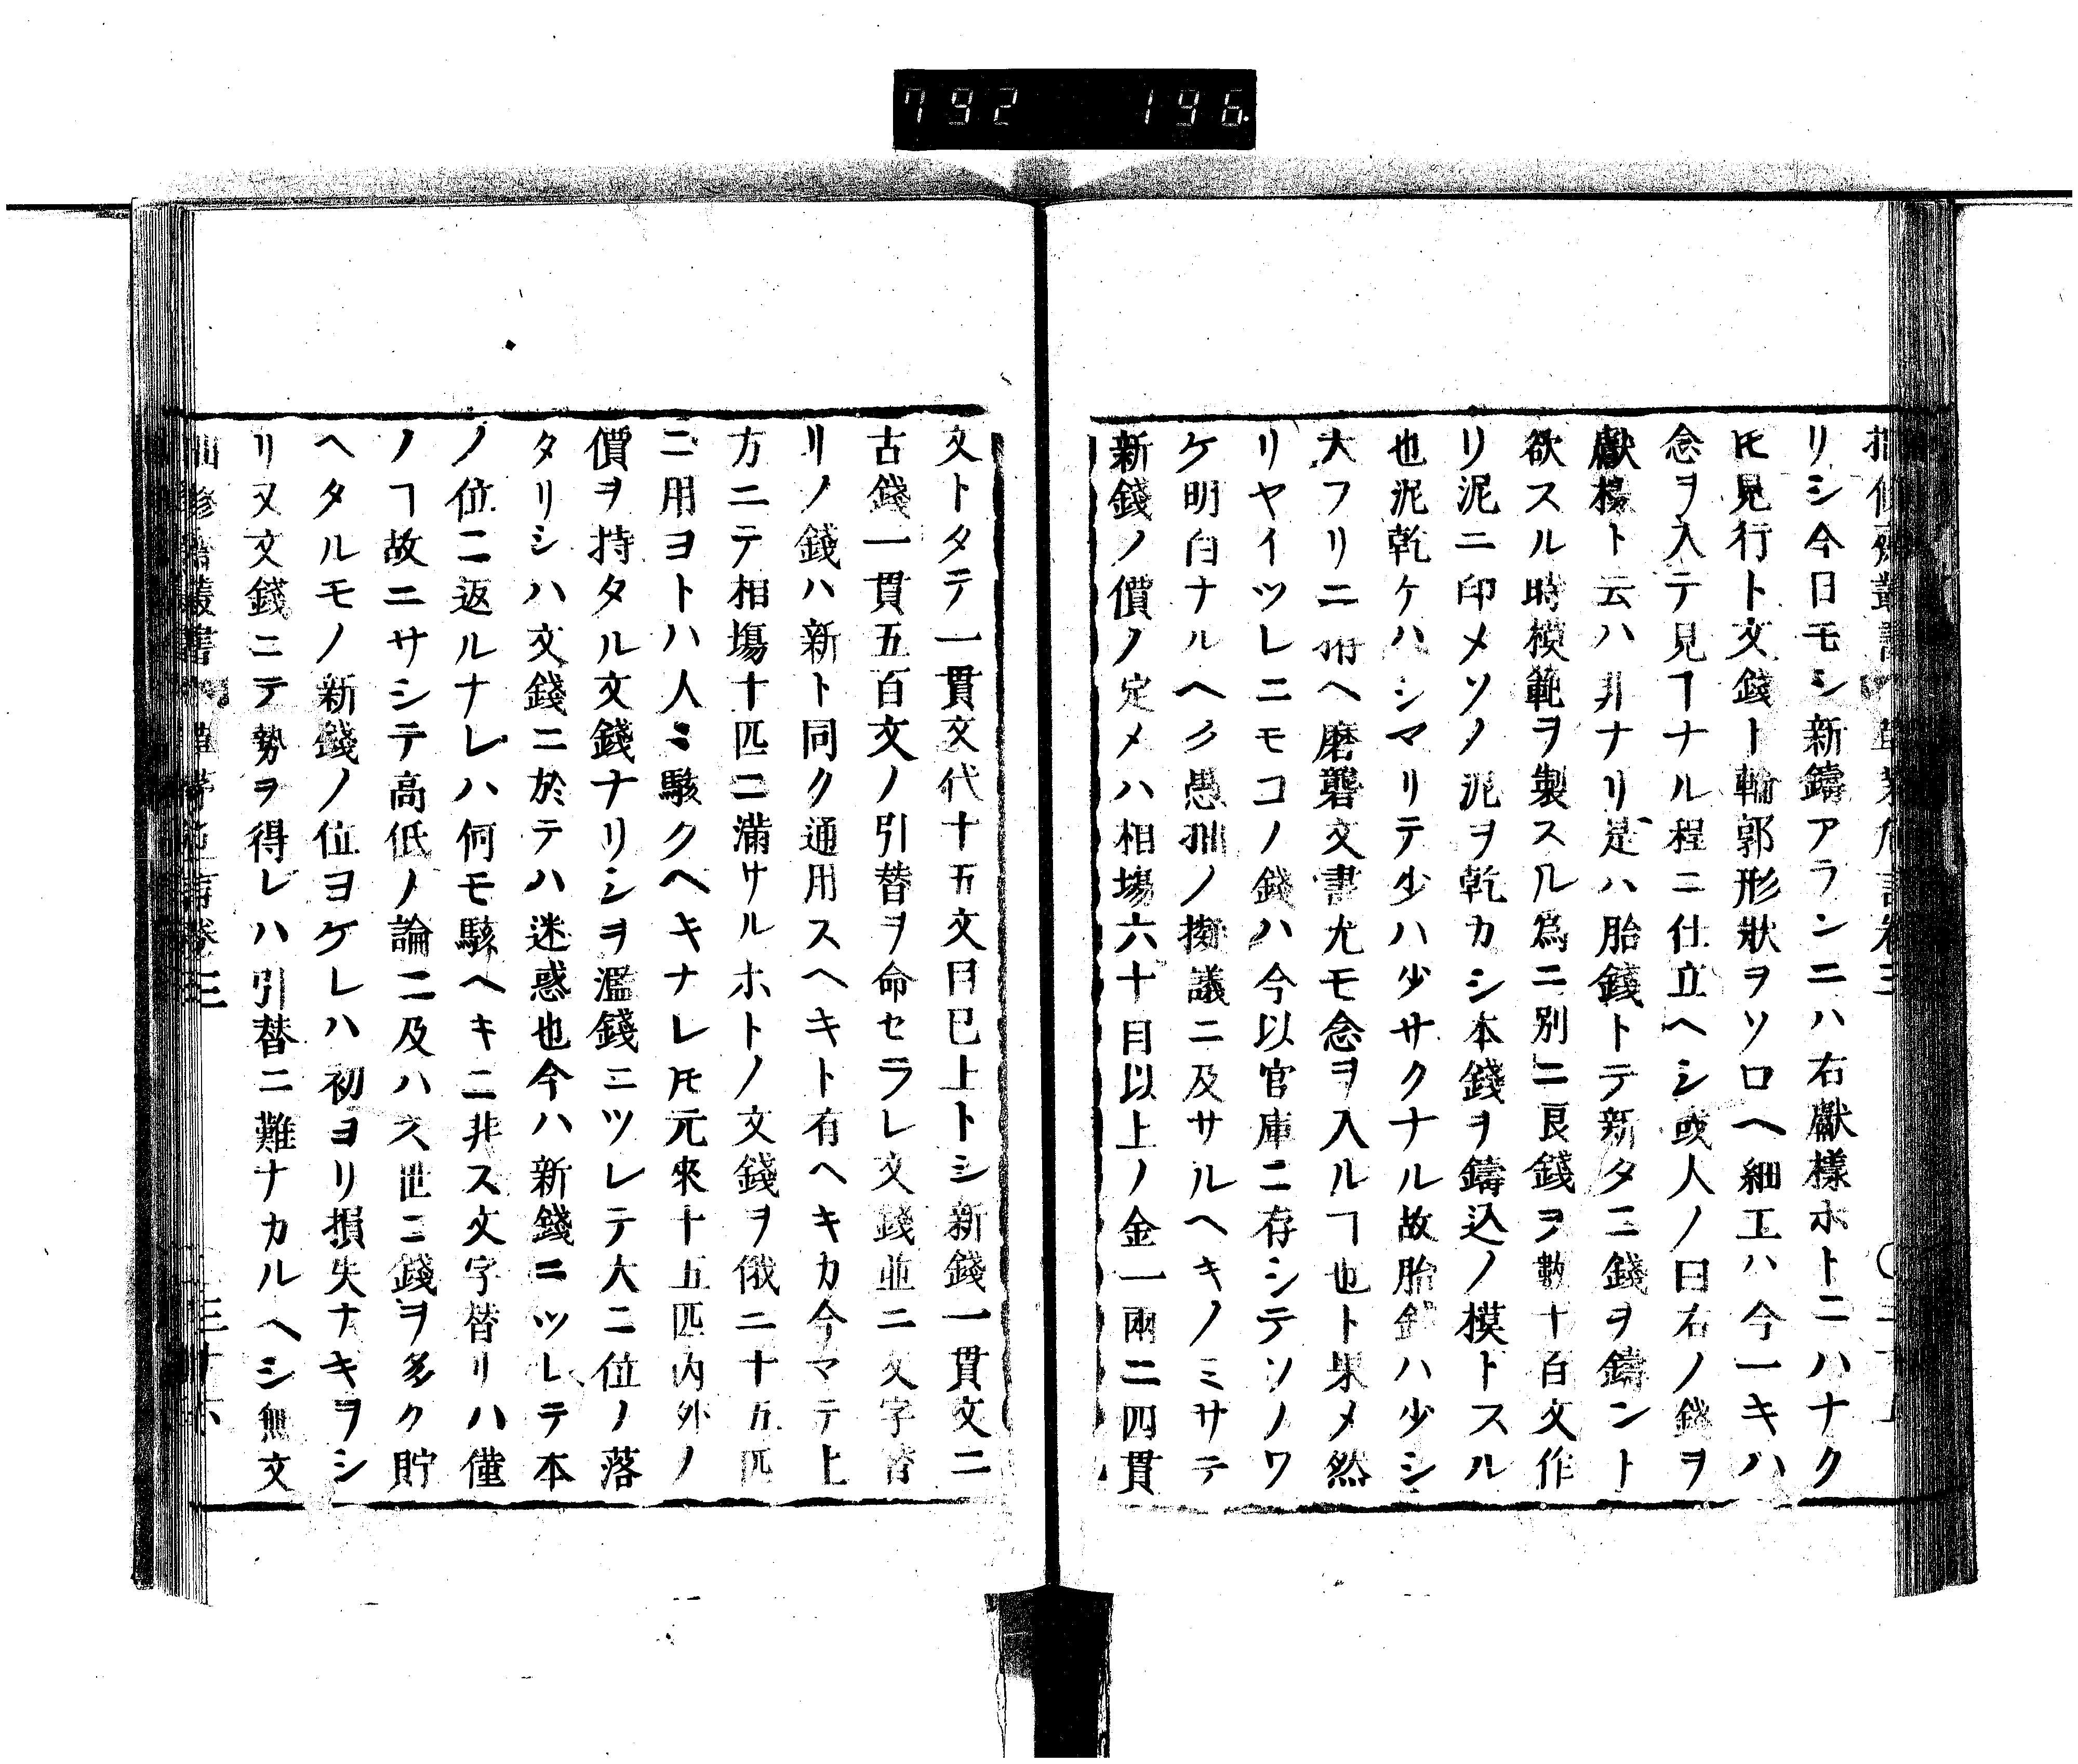 792 196.
リシ今日モシ新鑄アランニハ右獻樣ホトニハナク
𪜈見行ト文錢ト輪郭形狀ヲソロヘ細工ハ今一キハ
念ヲ入テ見ヿナル程ニ仕立ヘシ或人ノ曰右ノ錢ヲ
獻樣ト云ハ非ナリ是ハ胎錢トテ新タニ錢ヲ鑄ント
欲スル時模範ヲ製スル爲ニ別ニ良錢ヲ數十百文作
リ泥ニ印メソノ泥ヲ乾カシ本錢ヲ鑄込ノ模トスル
也泥乾ケハシマリテ少ハ少サクナル故胎錢ハ少シ
大フリニ拵ヘ磨礱文書尤モ念ヲ入ルヿ也ト果メ然
リヤイツレニモコノ錢ハ今以官庫ニ存シテソノワ
ケ明白ナルヘク愚拙ノ擬議ニ及サルヘキノミサテ
新錢ノ價ノ定メハ相場六十目以上ノ金一兩ニ四貫
文トタテ一貫文代十五文目已上トシ新錢一貫文ニ
古錢一貫五百文ノ引替ヲ命セラレ文錢並ニ文字皆
リノ錢ハ新ト同ク通用スヘキト有ヘキカ今マテ上
方ニテ相場十匹ニ滿サルホトノ文錢ヲ俄ニ十五匹
ニ用ヨトハ人ミ駭クヘキナレ𪜈元來十五匹内外ノ
價ヲ持タル文錢ナリシヲ濫錢ニツレテ大ニ位ノ落
タリシハ文錢ニ於テハ迷惑也今ハ新錢ニツレテ本
ノ位ニ返ルナレハ何モ駭ヘキニ非ス文字替リハ僅
ノヿ故ニサシテ高低ノ論ニ及ハス世ニ錢ヲ多ク貯
ヘタルモノ新錢ノ位ヨケレハ初ヨリ損失ナキヲシ
リ又文錢ニテ勢ヲ得レハ引替ニ難ナカルヘシ無文
叢書 草茅危言卷三 三十六